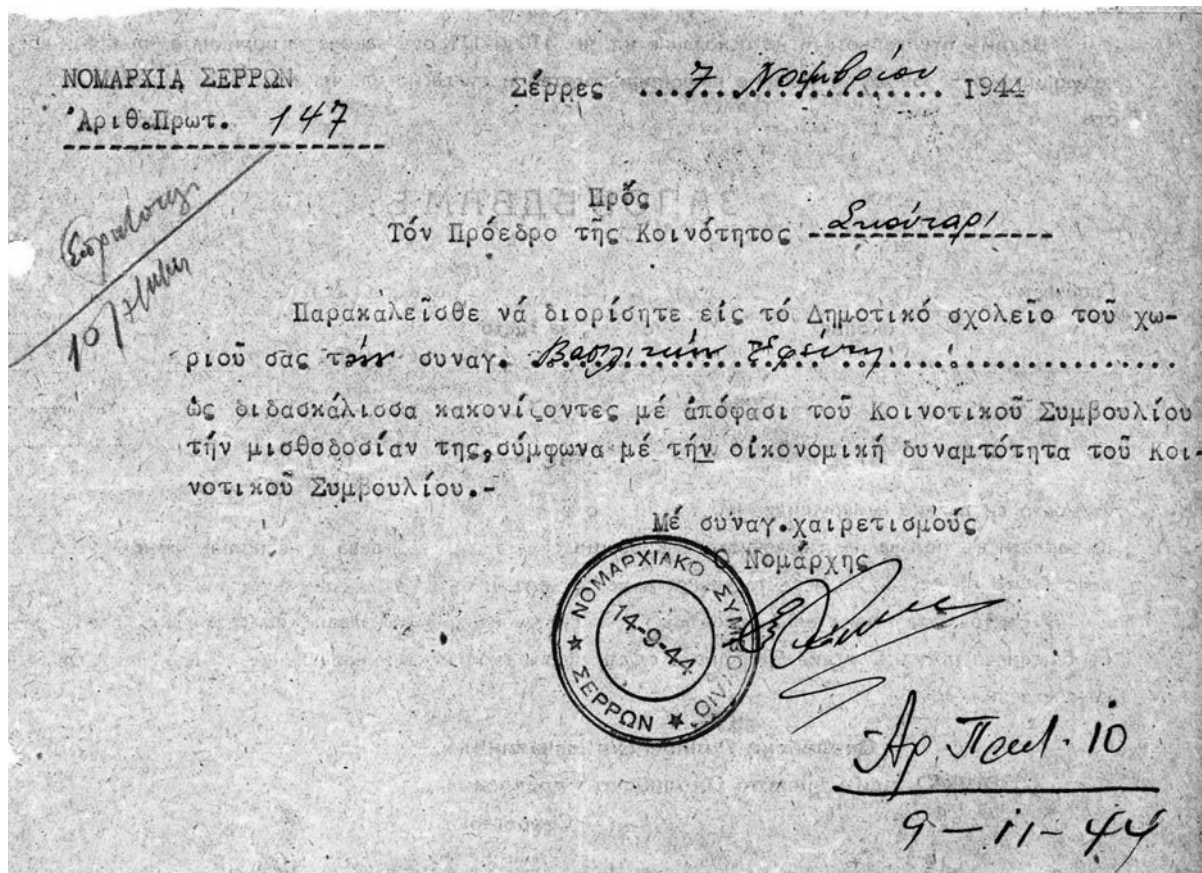 ΝΟΜΑΡΧΙΑ ΣΕΡΡΩΝ
Ἀριθ.Πρωτ. 147
Σέρρες 7 Νοεμβρίου 1944
Πρός
Τόν Πρόεδρο τῆς Κοινότητος Σκούταρι
Παρακαλεῖσθε νά διορίσητε εἰς τό Δημοτικό σχολεῖο τοῦ χω-
ριοῦ σας τήν συναγ. Βασιλικήν
ὡς διδασκάλισσα κακονίζοντες μέ ἀπόφασι τοῦ Κοινοτικοῦ Συμβουλίου
τήν μισθοδοσίαν της,σύμφωνα μέ τήν οἰκονομική δυναμτότητα τοῦ Κοι-
νοτικοῦ Συμβουλίου.-
Μέ συναγ.χαιρετισμούς
Ὁ Νομάρχης
ΝΟΜΑΡΧΙΑΚΟ ΣΥΜΒΟΥΛΙΟ
14-9-44
ΣΕΡΡΩΝ
Αρ. Πρωτ. 10
9-11-44